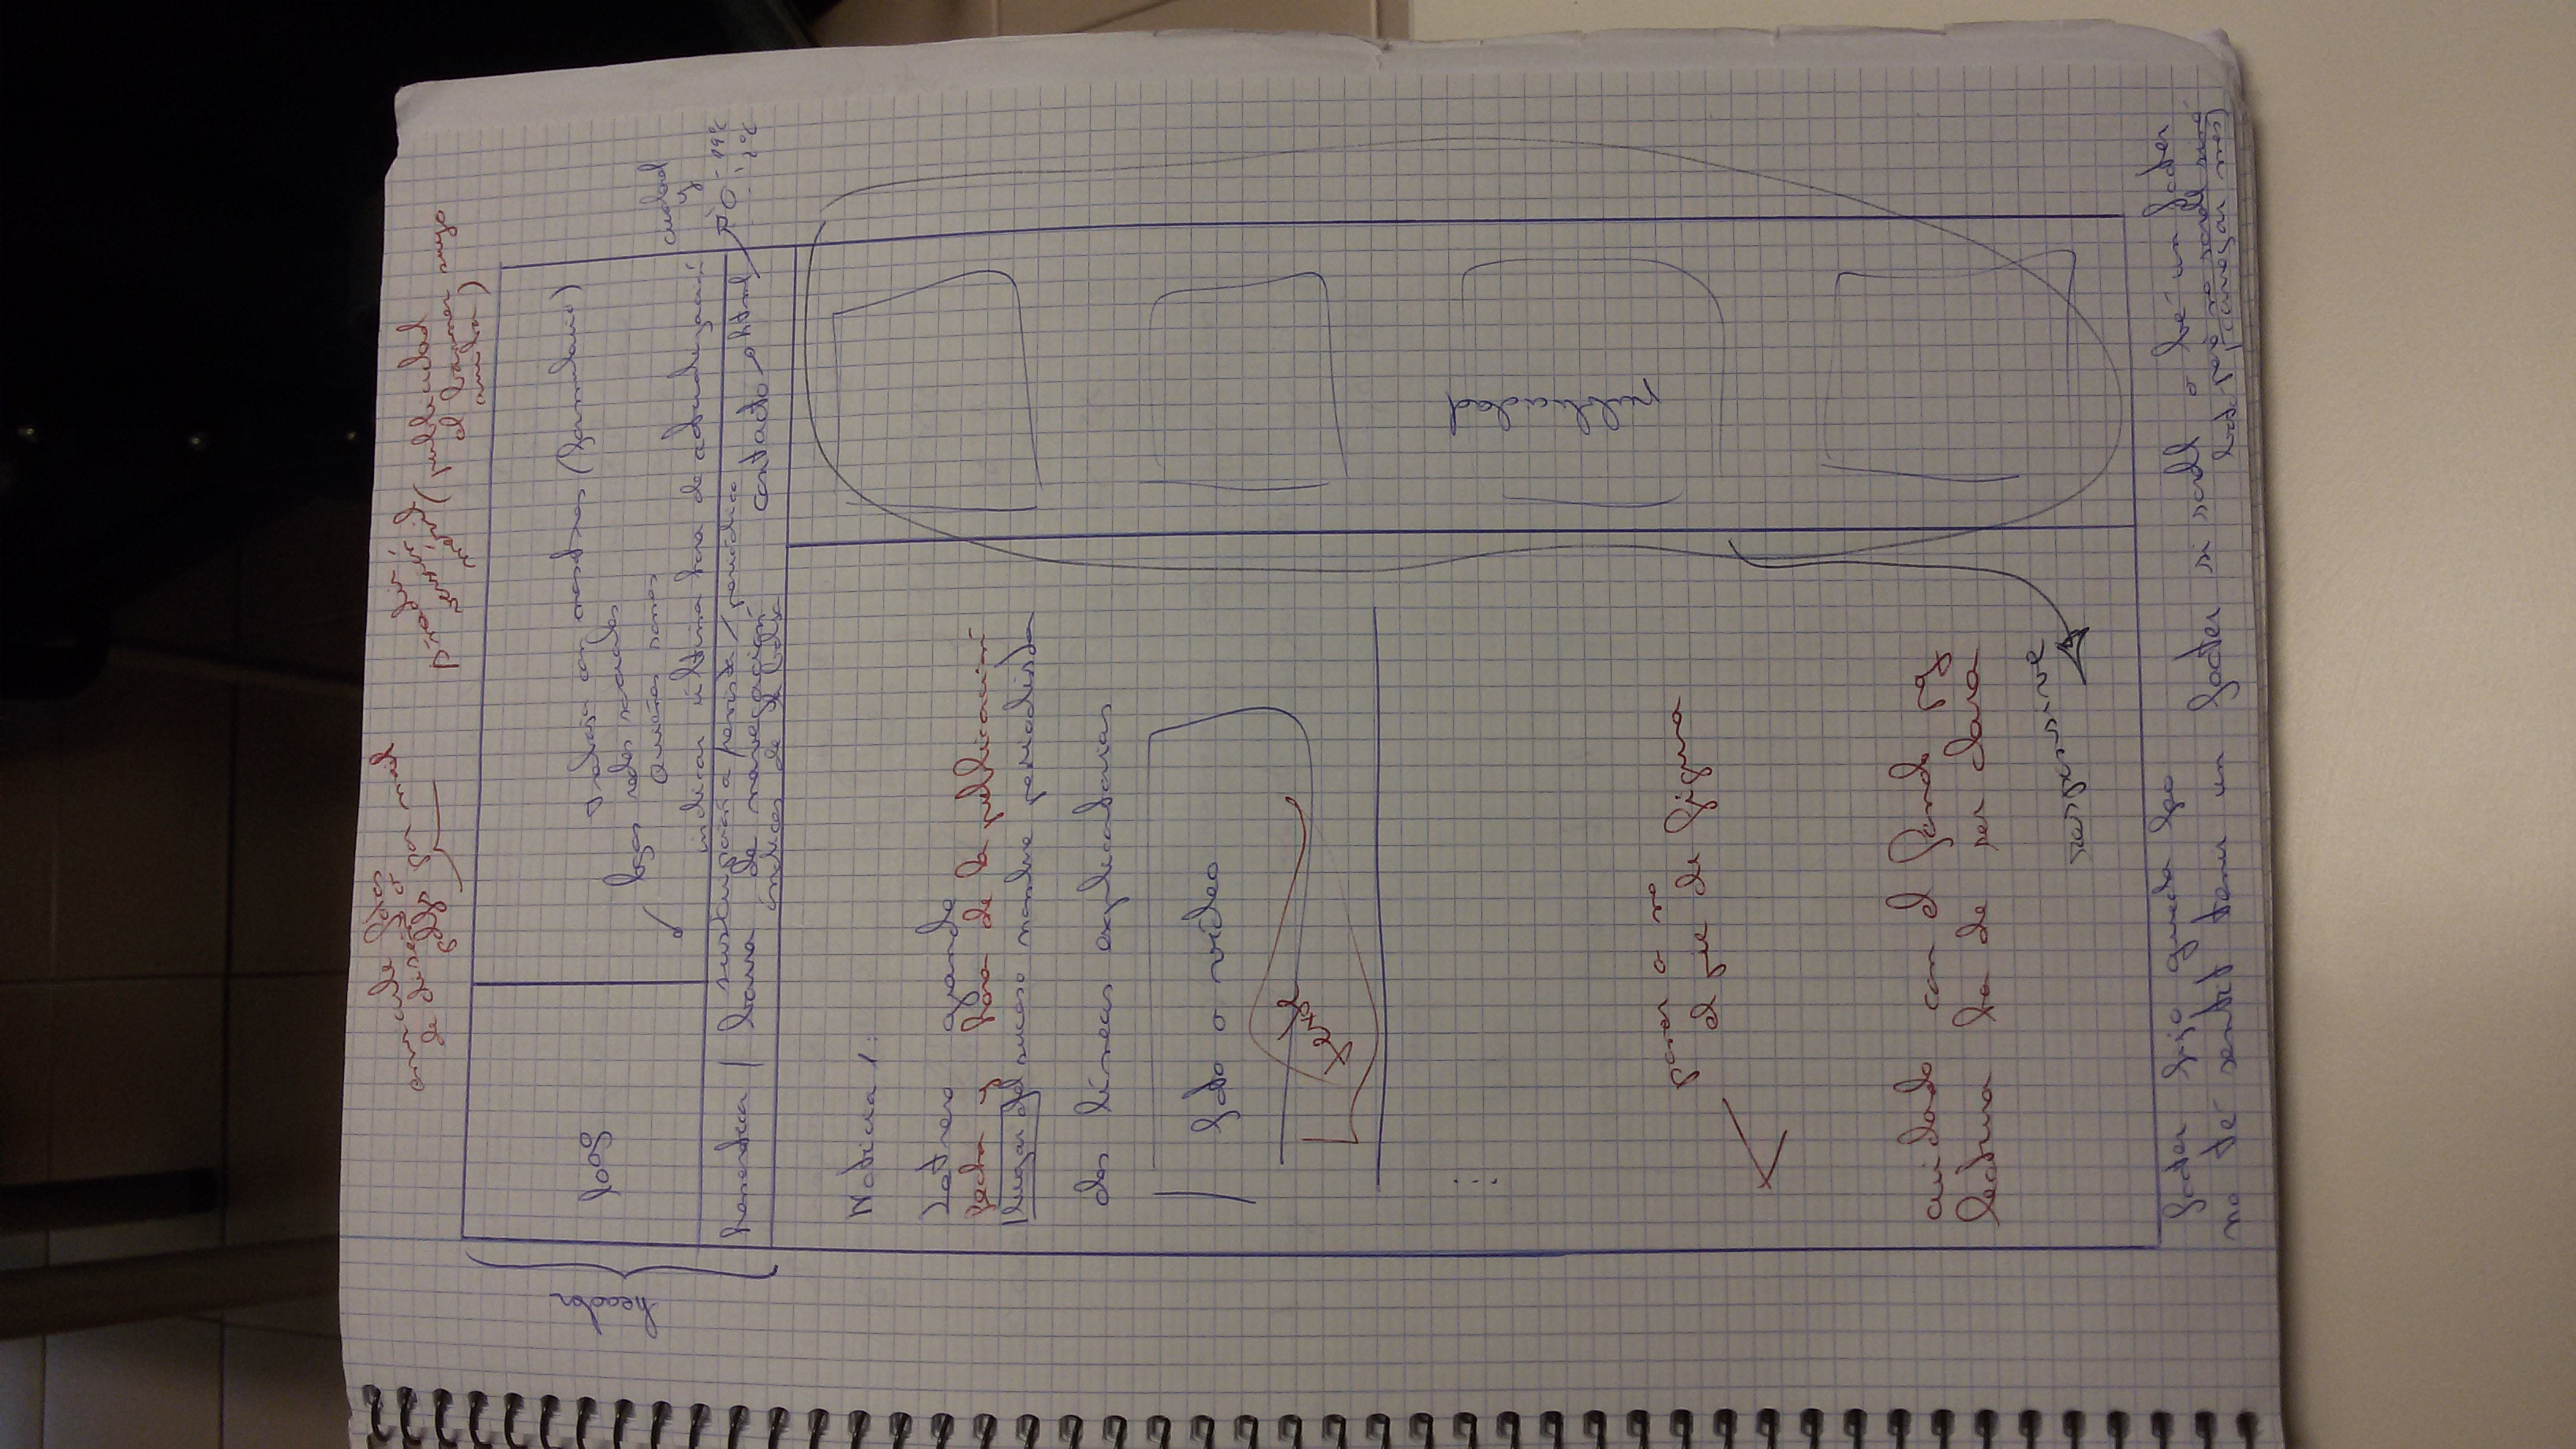 enviarle fotos
de diseño o
pdfs por mail
añadir
versión
móvil (publicidad
el banner suyo
arriba)
header
logo
trabaja con nosotros (formulario)
logos redes sociales
Quienes somos
indicar última hora de actualización
ciudad
y
suscripción a revista / periódico
hemeroteca / barra de navegación
contacto → html
índices de la bolsa
Noticia 1:
Letrero grande
fecha y hora de la publicación
lugar del suceso nombre periodista
dos líneas explicatorias
foto o vídeo
texto
publicidad
poner o no
el pie de figura
cuidado con el fondo pq
lectura ha de ser clara
responsive
footer fijo queda feo
no té sentit tenir un footer si scroll o bé un footer
però no scroll sinó
carregar més)